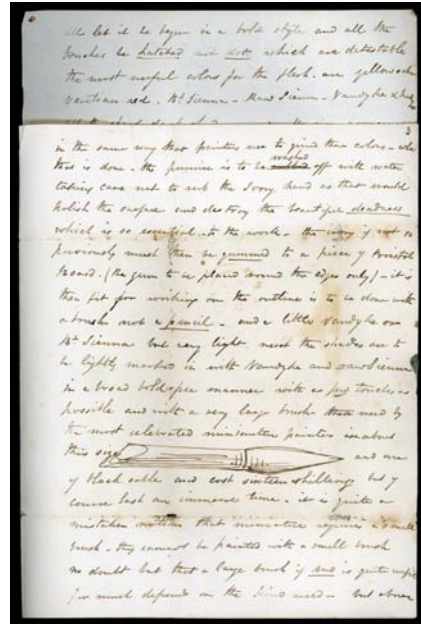 all let it be begun in a bold style and all the
touches be hatched not dots which are detestable
the most useful colors for the flesh are yellow ochre
venetian red - Bt Sienna - Raw Sienna - Vandyke
3
in the same way that painters use to grind their colors -
this is done - the pumice is to be washed off with water
taking care not to rub the Ivory hard as that would
polish the surface and destroy the beautiful deadness
which is so essential to the work - the ivory if not so
previously must then be gummed to a piece of Bristol
Board. (the gum to be placed round the edges only) - it is
then fit for working on the outline is to be done with
a brush not a pencil - and a little Vandyke or
Bt Sienna but very light, next the shades are to
be lightly marked in with Vandyke and raw Sienna
in a broad bold free manner with as few touches as
possible and with a very large brush those used by
the most celebrated miniature painters are about
this size and are
of black sable and cost sixteen shillings but of
course last an immense time - it is quite a
mistaken notion that miniature requires a small
brush - they cannot be painted with a small brush
no doubt but that a large brush if bad is quite unfit
for much depends on the kind used - but above